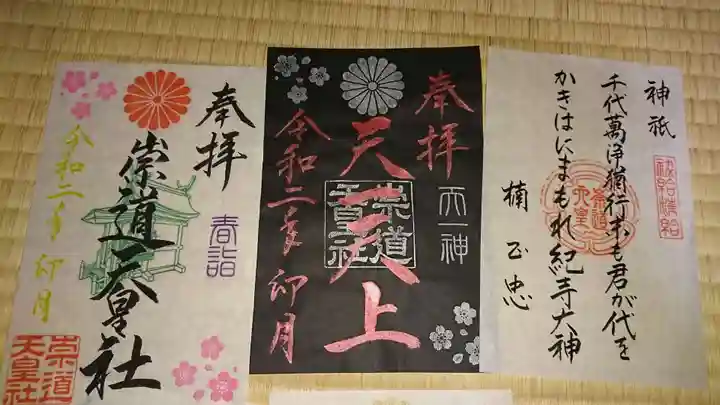 奉拝
崇道天皇社
春詣
令和二年卯月
崇道
天皇社
奉拝
天一天上
天一神
崇道
天皇社
令和二年卯月
神祇
千代萬浄猶行末も君が代を
かきはにまもれ紀寺大神
楠正忠